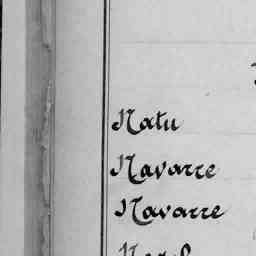 Natu
Navarre
Navarre